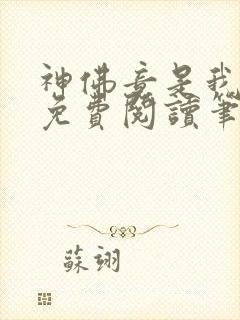 神佛竟是我
免費閱讀筆
蘇翊